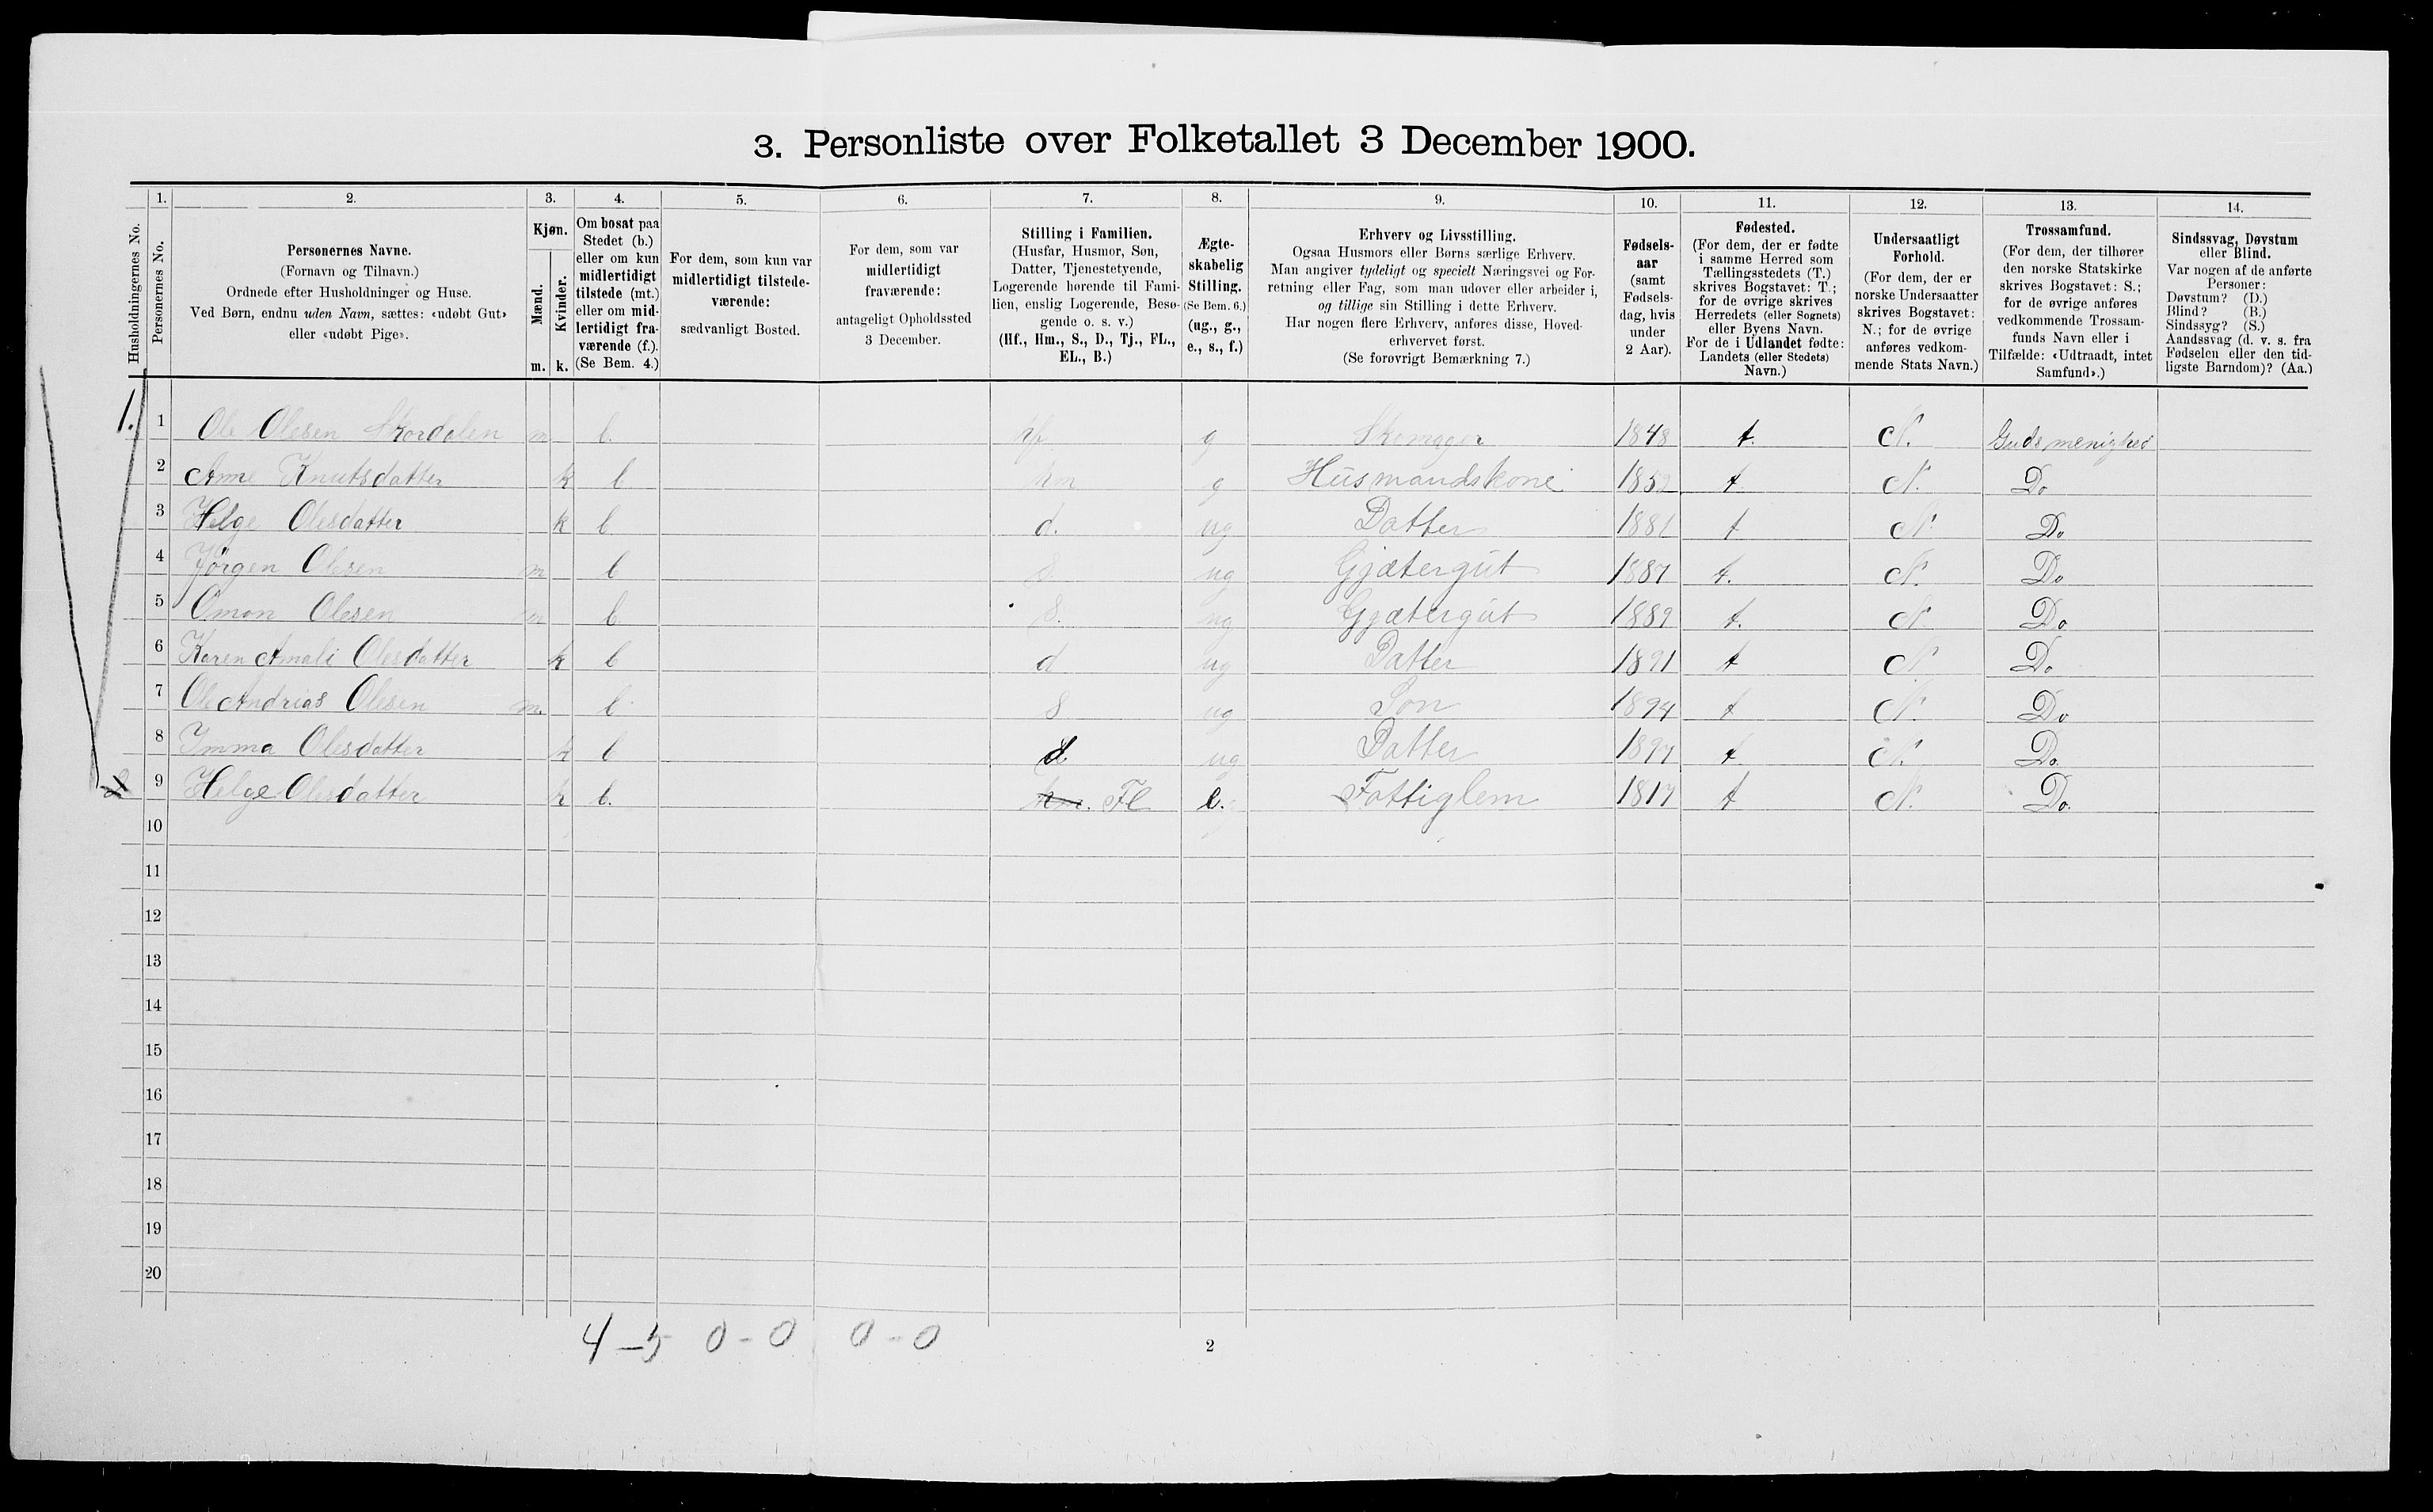 3. Personliste over Folketallet 3 December 1900.
1. 2. 3. 4. 5. 6. 7. 8. 9. 10. 11. 12. 13. 14.
Husholdningernes No.
Personernes No.
Personernes Navne.
(Fornavn og Tilnavn.)
Ordnede efter Husholdninger og Huse.
Ved Børn, endnu uden Navn, sættes: «udøbt Gut»
eller «udøbt Pige».
Kjøn.
Mænd.
Kvinder.
m. k.
Om bosat paa
Stedet (b.)
eller om kun
midlertidigt
tilstede (mt.)
eller om mid-
lertidigt fra-
værende (f.).
(Se Bem. 4.)
For dem, som kun var
midlertidigt tilstede-
værende:
sædvanligt Bosted.
For dem, som var
midlertidigt
fraværende:
antageligt Opholdssted
3 December.
Stilling i Familien.
(Husfar, Husmor, Søn,
Datter, Tjenestetyende,
Logerende hørende til Fami-
lien, enslig Logerende, Besø-
gende o. s. v.)
(Hf., Hm., S., D., Tj., FL.,
EL., B.)
Ægte-
skabelig
Stilling.
(Se Bem. 6.)
(ug., g.,
e., s., f.)
Erhverv og Livsstilling.
Ogsaa Husmors eller Børns særlige Erhverv.
Man angiver tydeligt og specielt Næringsvei og For-
retning eller Fag, som man udøver eller arbeider i,
og tillige sin Stilling i dette Erhverv.
Har nogen flere Erhverv, anføres disse, Hoved-
erhvervet først.
(Se forøvrigt Bemærkning 7.)
Fødsels-
aar
(samt
Fødsels-
dag, hvis
under
2 Aar).
Fødested.
(For dem, der er fødte
i samme Herred som
Tællingsstedets (T.)
skrives Bogstavet: T.;
for de øvrige skrives
Herredets (eller Sognets)
eller Byens Navn.
For de i Udlandet fødte:
Landets (eller Stedets)
Navn.)
Undersaatligt
Forhold.
(For dem, der er
norske Undersaatter
skrives Bogstavet:
N.; for de øvrige
anføres vedkom-
mende Stats Navn.)
Trossamfund.
(For dem, der tilhører
den norske Statskirke
skrives Bogstavet: S.;
for de øvrige anføres
vedkommende Trossam-
funds Navn eller i
Tilfælde: «Udtraadt, intet
Samfund».)
Sindssvag, Døvstum
eller Blind.
Var nogen af de anførte
Personer:
Døvstum? (D.)
Blind? (B.)
Sindssyg? (S.)
Aandssvag (d. v. s. fra
Fødselen eller den tid-
ligste Barndom)? (Aa.)
1. 1 Ole Olesen Skordalen m b. hf g Skomager 1848 t. N. Guds menighed
2 Anne Knutsdatter k b hm g Husmandskone 1852 t N. Do
3 Helge Olesdatter k b d. ug Datter 1881 t N. Do
4 Jörgen Olesen m b s. ug Gjætergut 1887 t. N. Do
5 Omon Olesen m b s. ug Gjætergut 1889 t. N. Do
6 Karen Amali Olesdatter k b d ug Datter 1891 t N. Do
7 Ole Andrias Olesen m. b s ug Son 1894 t N. Do
8 Imma Olesdatter k b d. ug Datter 1897 t N. Do.
2 9 Helge Olesdatter k b. hm. Fl e. Fattiglem 1817 t N. Do.
10
11
12
13
14
15
16
17
18
19
20
4-5 0-0 0-0
2